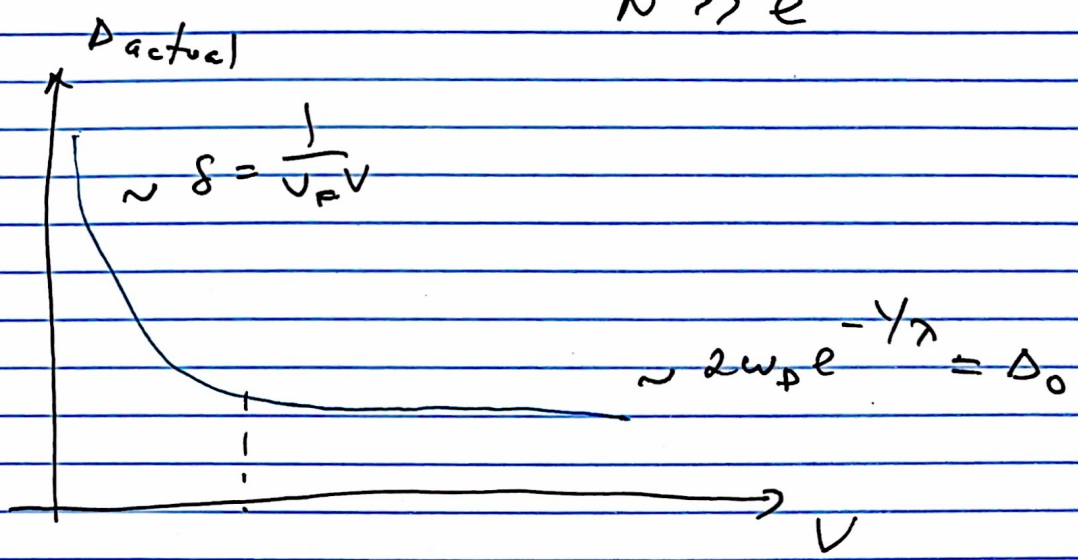 N >> e
Δ actual
~ δ = 1/ν_F V
~ 2ω_D e^{-1/λ} = Δ_0
V